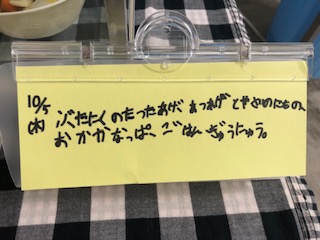 10/5
(木) ぶたにくのたつたあげ、あつあげとやさいのにもの、
おかかなっぱ、ごはん、ぎゅうにゅう。